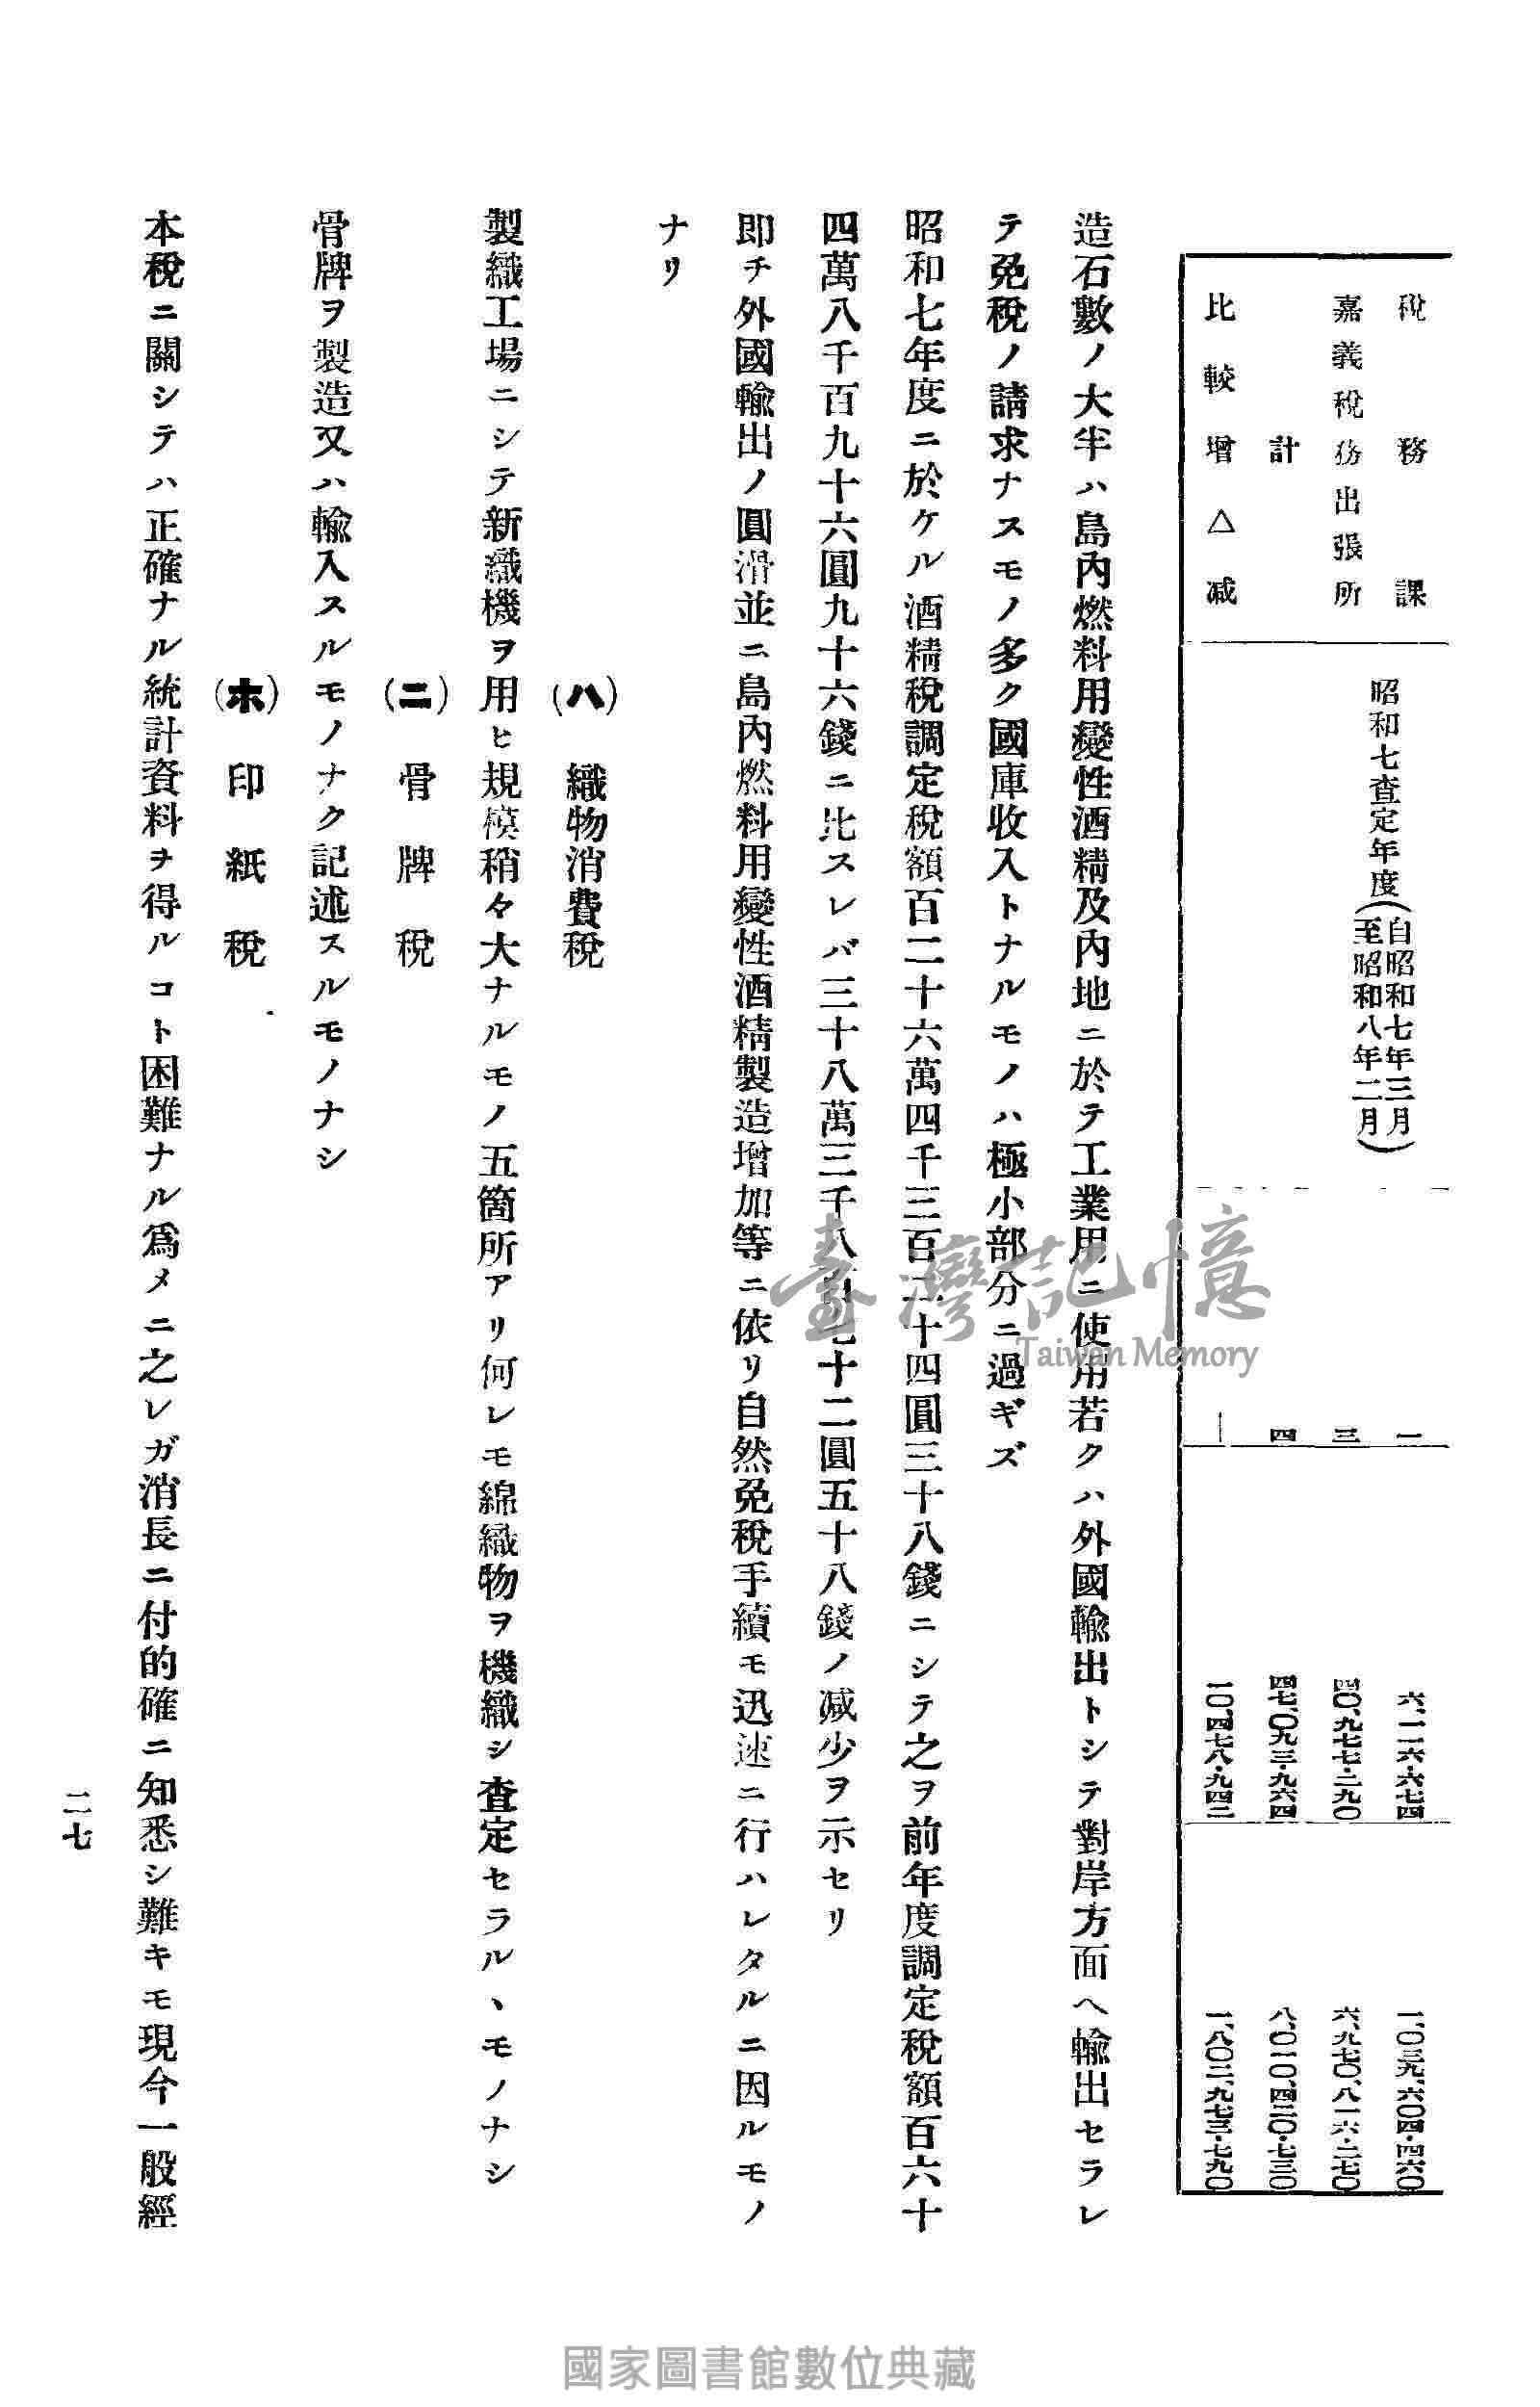 稅務課
昭和七查定年度(自昭和七年三月至昭和八年二月)
一
六、一一六・六七四
一、〇三九、六〇四・四六〇
嘉義稅務出張所
三
四〇、九七七・二九〇
六、九七〇、八一六・二七〇
計
四
四七、〇九三・九六四
八、〇一〇、四二〇・七三〇
比較增△減
—
一〇、四七八・九四二
一、八〇二、九七三・七九〇
造石數ノ大半ハ島內燃料用變性酒精及內地ニ於テ工業用ニ使用若クハ外國輸出トシテ對岸方面ヘ輸出セラレ
テ免稅ノ請求ナスモノ多ク國庫收入トナルモノハ極小部分ニ過ギズ
昭和七年度ニ於ケル酒精稅調定稅額百二十六萬四千三百二十四圓三十八錢ニシテ之ヲ前年度調定稅額百六十
四萬八千百九十六圓九十六錢ニ比スレバ三十八萬三千八百七十二圓五十八錢ノ减少ヲ示セリ
即チ外國輸出ノ圓滑並ニ島內燃料用變性酒精製造增加等ニ依リ自然免稅手續モ迅速ニ行ハレタルニ因ルモノ
ナリ
(ハ) 織物消費稅
製織工場ニシテ新織機ヲ用ヒ規模稍々大ナルモノ五箇所アリ何レモ綿織物ヲ機織シ查定セラルヽモノナシ
(ニ) 骨牌稅
骨牌ヲ製造又ハ輸入スルモノナク記述スルモノナシ
(ホ) 印紙稅
本稅ニ關シテハ正確ナル統計資料ヲ得ルコト困難ナル爲メニ之レガ消長ニ付的確ニ知悉シ難キモ現今一般經
二七
臺灣記憶
Taiwan Memory
國家圖書館數位典藏